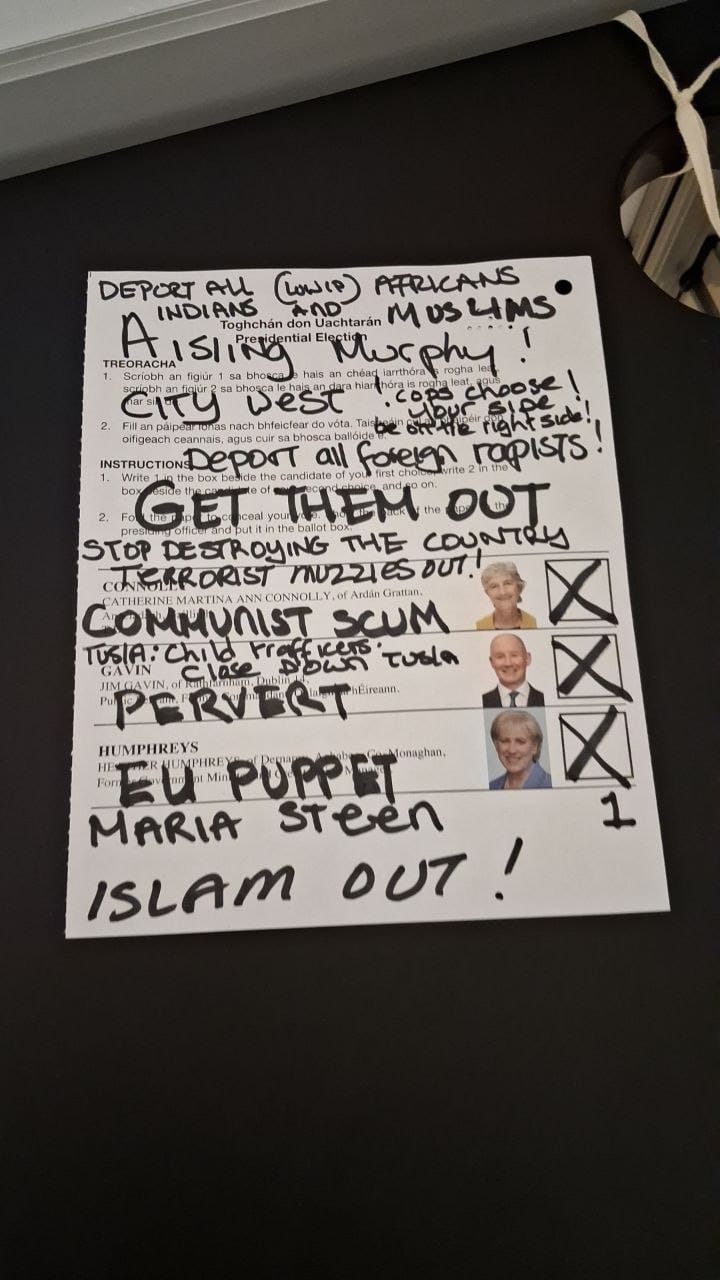 DEPORT ALL (LOW IP) AFRICANS
INDIANS AND MUSLIMS
Toghchán don Uachtarán
Presidential Election
AISLING MURPHY!
TREORACHA
1. Scríobh an figiúr 1 sa bhosca le hais an chéad iarrthóra is rogha leat,
scríobh an figiúr 2 sa bhosca le hais an dara hiarrthóra is rogha leat, agus
mar sin
CITY WEST! COPS CHOOSE!
YOUR SIDE
be on the right side!
2. Fill an páipéar ionas nach bhfeicfear do vóta.
oifigeach ceannais, agus cuir sa bhosca ballóide é.
INSTRUCTIONS
DEPORT all foreign rapists!
1. Write 1 in the box beside the candidate of your first choice, write 2 in the
box beside the candidate of your second choice, and so on.
GET THEM OUT
2. Fold the paper to conceal your vote. the back of the paper the
presiding officer and put it in the ballot box.
STOP DESTROYING THE COUNTRY
TERRORIST MUZZIES OUT!
CONNOLLY
CATHERINE MARTINA ANN CONNOLLY, of Ardán Grattan,
COMMUNIST SCUM
TUSLA: Child traffickers.
Close DOWN TUSLA
GAVIN
JIM GAVIN, of Rathfarnham, Dublin
hÉireann.
PERVERT
HUMPHREYS
HEATHER HUMPHREYS, of Co. Monaghan,
Former Government Minister
EU PUPPET
MARIA STEEN 1
ISLAM OUT!